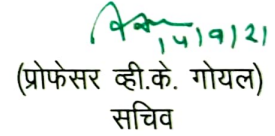 14/9/21
(प्रोफेसर व्ही.के. गोयल)
सचिव